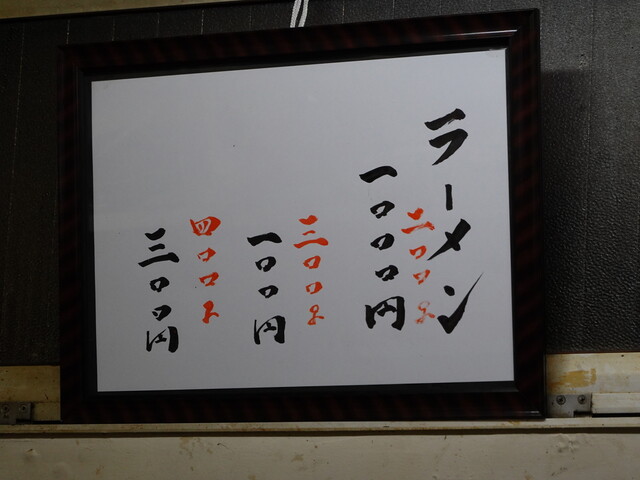 ラーメン
二〇〇g
一〇〇〇円
三〇〇g
一〇〇円
四〇〇g
三〇〇円